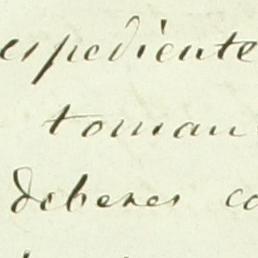 espediente
toman
deberes co